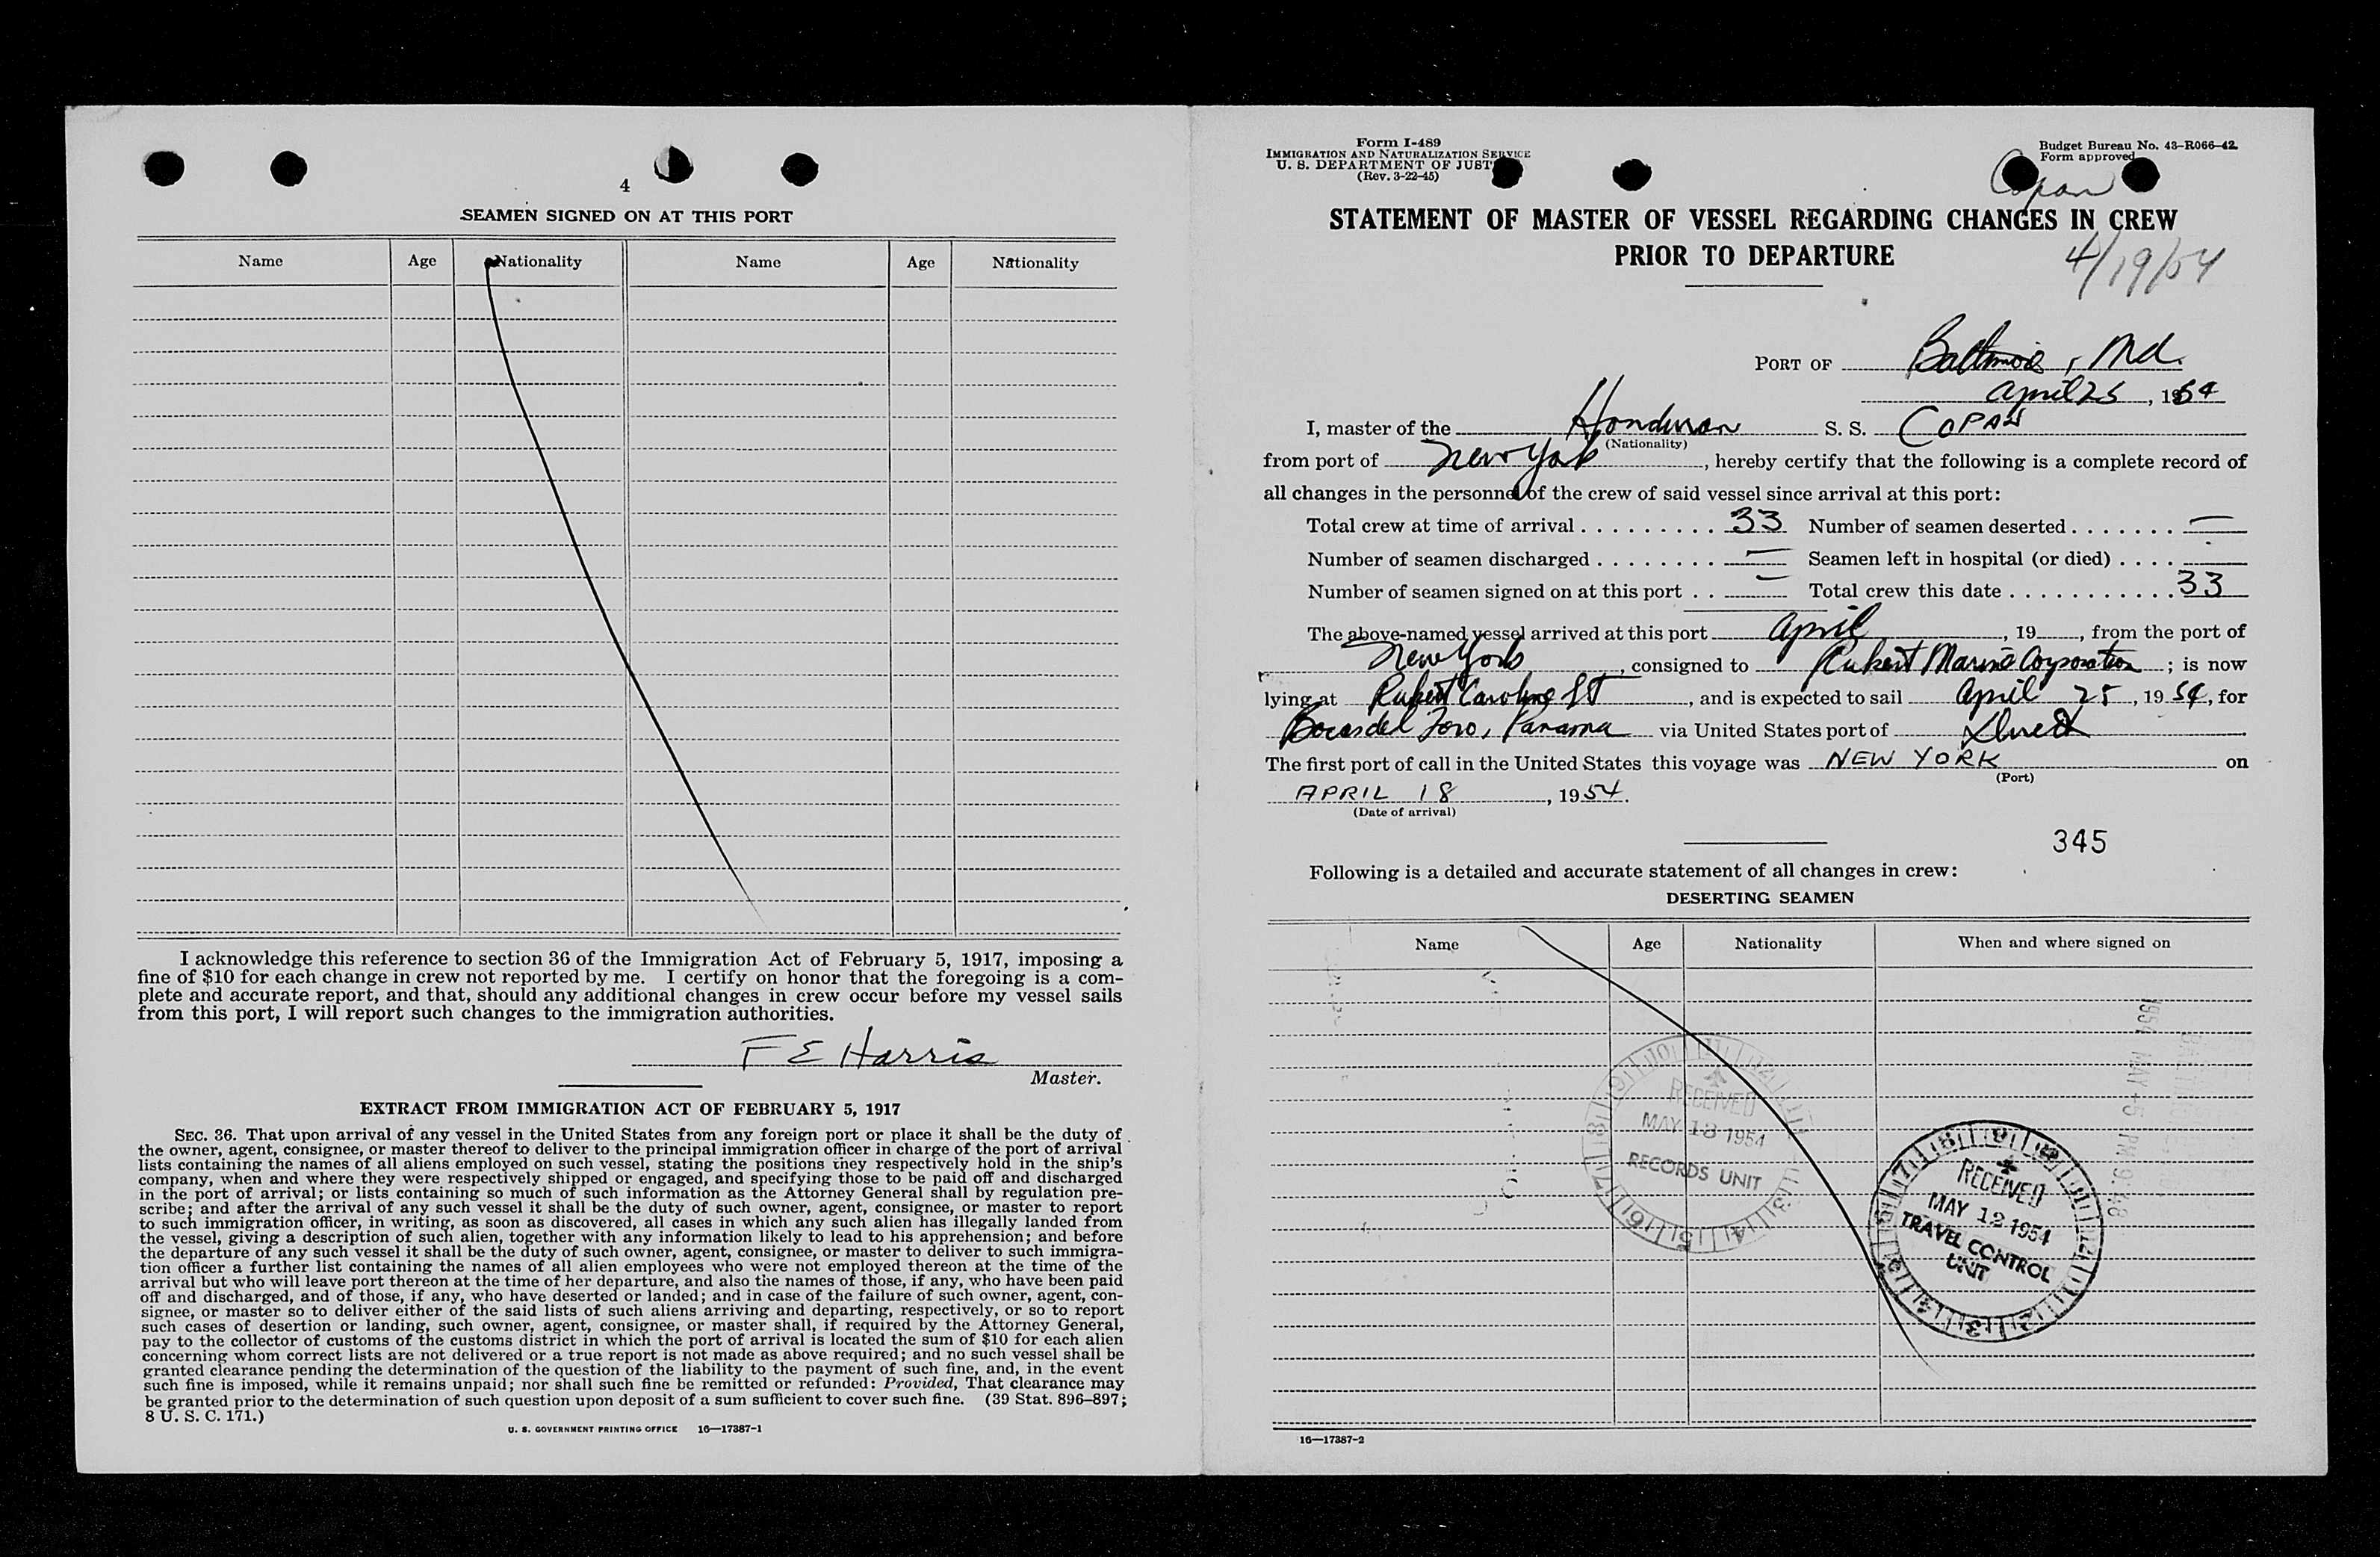 4
SEAMEN SIGNED ON AT THIS PORT
Name Age Nationality Name Age Nationality
I acknowledge this reference to section 36 of the Immigration Act of February 5, 1917, imposing a
fine of $10 for each change in crew not reported by me. I certify on honor that the foregoing is a com-
plete and accurate report, and that, should any additional changes in crew occur before my vessel sails
from this port, I will report such changes to the immigration authorities.
F E Harris
Master.
EXTRACT FROM IMMIGRATION ACT OF FEBRUARY 5, 1917
SEC. 36. That upon arrival of any vessel in the United States from any foreign port or place it shall be the duty of
the owner, agent, consignee, or master thereof to deliver to the principal immigration officer in charge of the port of arrival
lists containing the names of all aliens employed on such vessel, stating the positions they respectively hold in the ship's
company, when and where they were respectively shipped or engaged, and specifying those to be paid off and discharged
in the port of arrival; or lists containing so much of such information as the Attorney General shall by regulation pre-
scribe; and after the arrival of any such vessel it shall be the duty of such owner, agent, consignee, or master to report
to such immigration officer, in writing, as soon as discovered, all cases in which any such alien has illegally landed from
the vessel, giving a description of such alien, together with any information likely to lead to his apprehension; and before
the departure of any such vessel it shall be the duty of such owner, agent, consignee, or master to deliver to such immigra-
tion officer a further list containing the names of all alien employees who were not employed thereon at the time of the
arrival but who will leave port thereon at the time of her departure, and also the names of those, if any, who have been paid
off and discharged, and of those, if any, who have deserted or landed; and in case of the failure of such owner, agent, con-
signee, or master so to deliver either of the said lists of such aliens arriving and departing, respectively, or so to report
such cases of desertion or landing, such owner, agent, consignee, or master shall, if required by the Attorney General,
pay to the collector of customs of the customs district in which the port of arrival is located the sum of $10 for each alien
concerning whom correct lists are not delivered or a true report is not made as above required; and no such vessel shall be
granted clearance pending the determination of the question of the liability to the payment of such fine, and, in the event
such fine is imposed, while it remains unpaid; nor shall such fine be remitted or refunded: Provided, That clearance may
be granted prior to the determination of such question upon deposit of a sum sufficient to cover such fine. (39 Stat. 896–897;
8 U. S. C. 171.)
U. S. GOVERNMENT PRINTING OFFICE 16—17387-1
Form I-489
IMMIGRATION AND NATURALIZATION SERVICE
U. S. DEPARTMENT OF JUST
(Rev. 3-22-45)
Budget Bureau No. 43–R066–42.
Form approved
Copan
STATEMENT OF MASTER OF VESSEL REGARDING CHANGES IN CREW
PRIOR TO DEPARTURE
4/19/54
PORT OF Baltimore, Md.
April 25, 1954
I, master of the Honduran S. S. COPAN
(Nationality)
from port of New York, hereby certify that the following is a complete record of
all changes in the personnel of the crew of said vessel since arrival at this port:
Total crew at time of arrival . . . . . . . . . 33 Number of seamen deserted . . . . . . . —
Number of seamen discharged . . . . . . . . — Seamen left in hospital (or died) . . . . -
Number of seamen signed on at this port . . — Total crew this date . . . . . . . . . . . 33
The above-named vessel arrived at this port April, 19, from the port of
New York, consigned to Rukert Marine Corporation; is now
lying at Rukert Caroline ST, and is expected to sail April 25, 1954, for
Bocas del Toro, Panama via United States port of Direct
The first port of call in the United States this voyage was NEW YORK on
(Port)
APRIL 18, 1954.
(Date of arrival)
345
Following is a detailed and accurate statement of all changes in crew:
DESERTING SEAMEN
Name Age Nationality When and where signed on
RECEIVED
MAY 13 1954
RECORDS UNIT
RECEIVED
MAY 12 1954
TRAVEL CONTROL
UNIT
1954 MAY -5 PM 9:48
16—17387-2